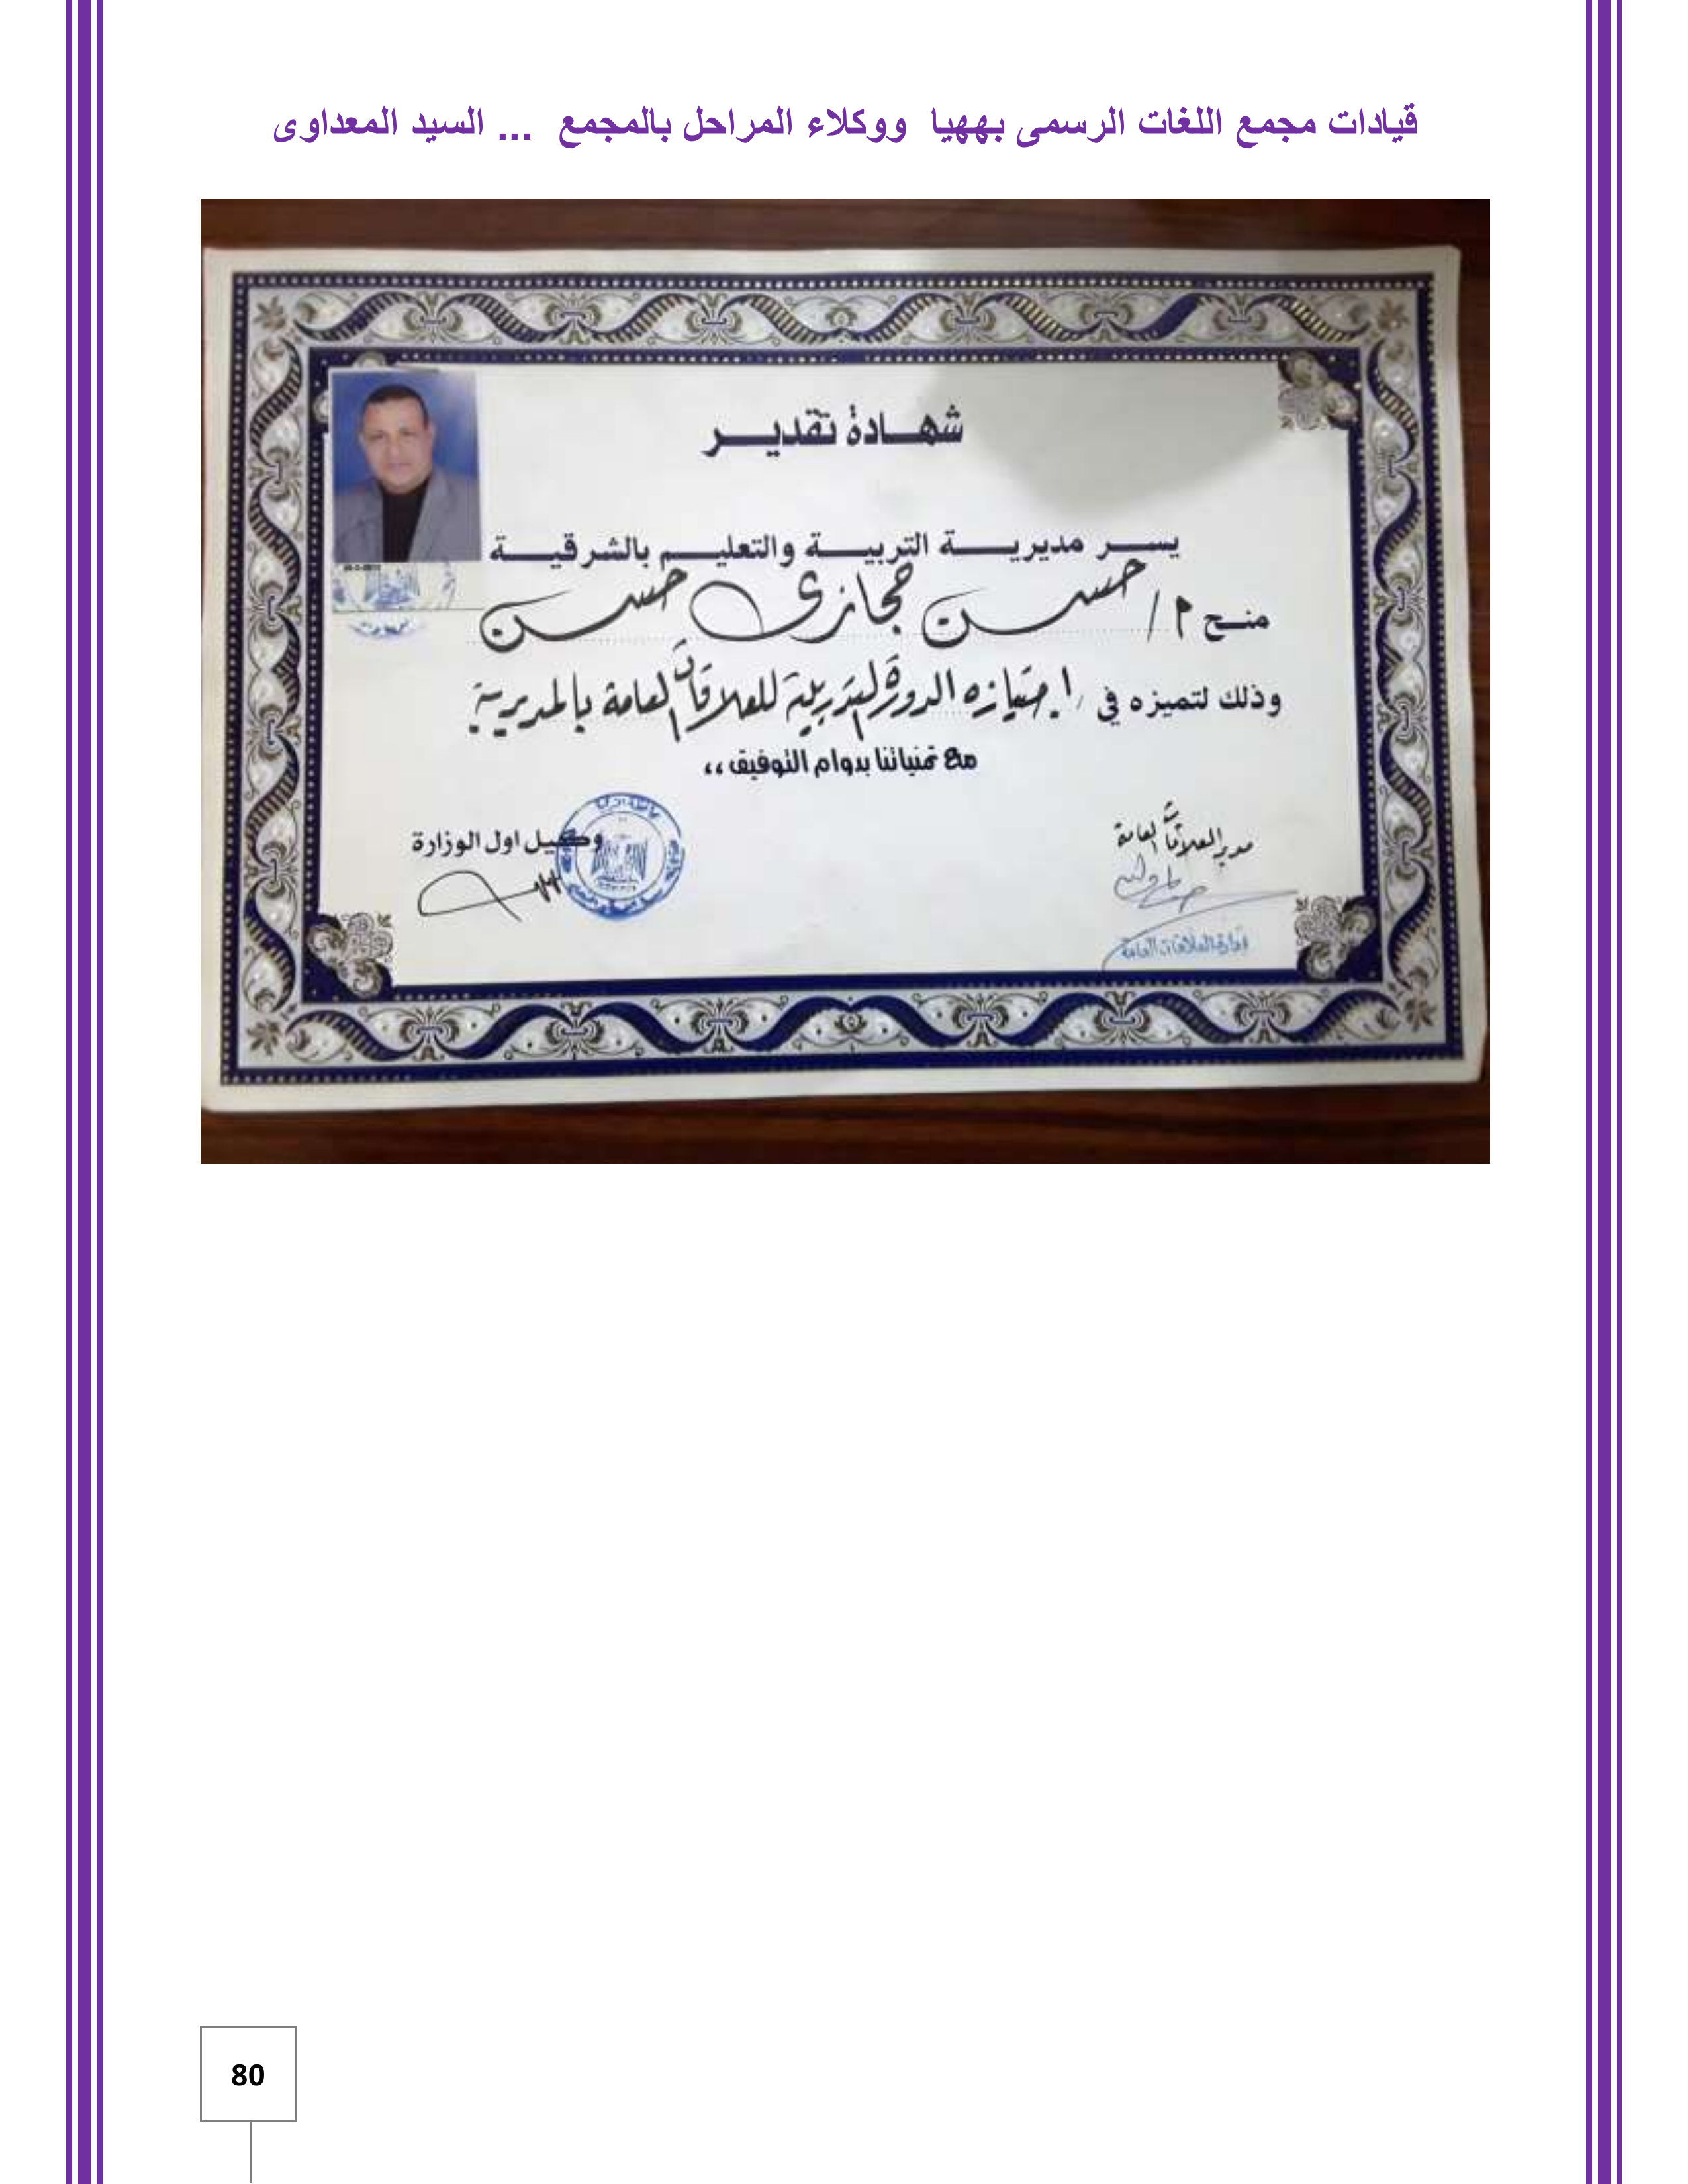 قيادات مجمع اللغات الرسمى بههيا ووكلاء المراحل بالمجمع ... السيد المعداوى
شهادة تقدير
يسر مديرية التربية والتعليم بالشرقية
منح م/ حسن حجازى حسن
وذلك لتميزه في اجتيازه الدورة التدريبية للعلاقات العامة بالمديرية
مع تمنياتنا بدوام التوفيق ،،
مدير العلاقات العامة
وكيل اول الوزارة
إدارة العلاقات العامة
80